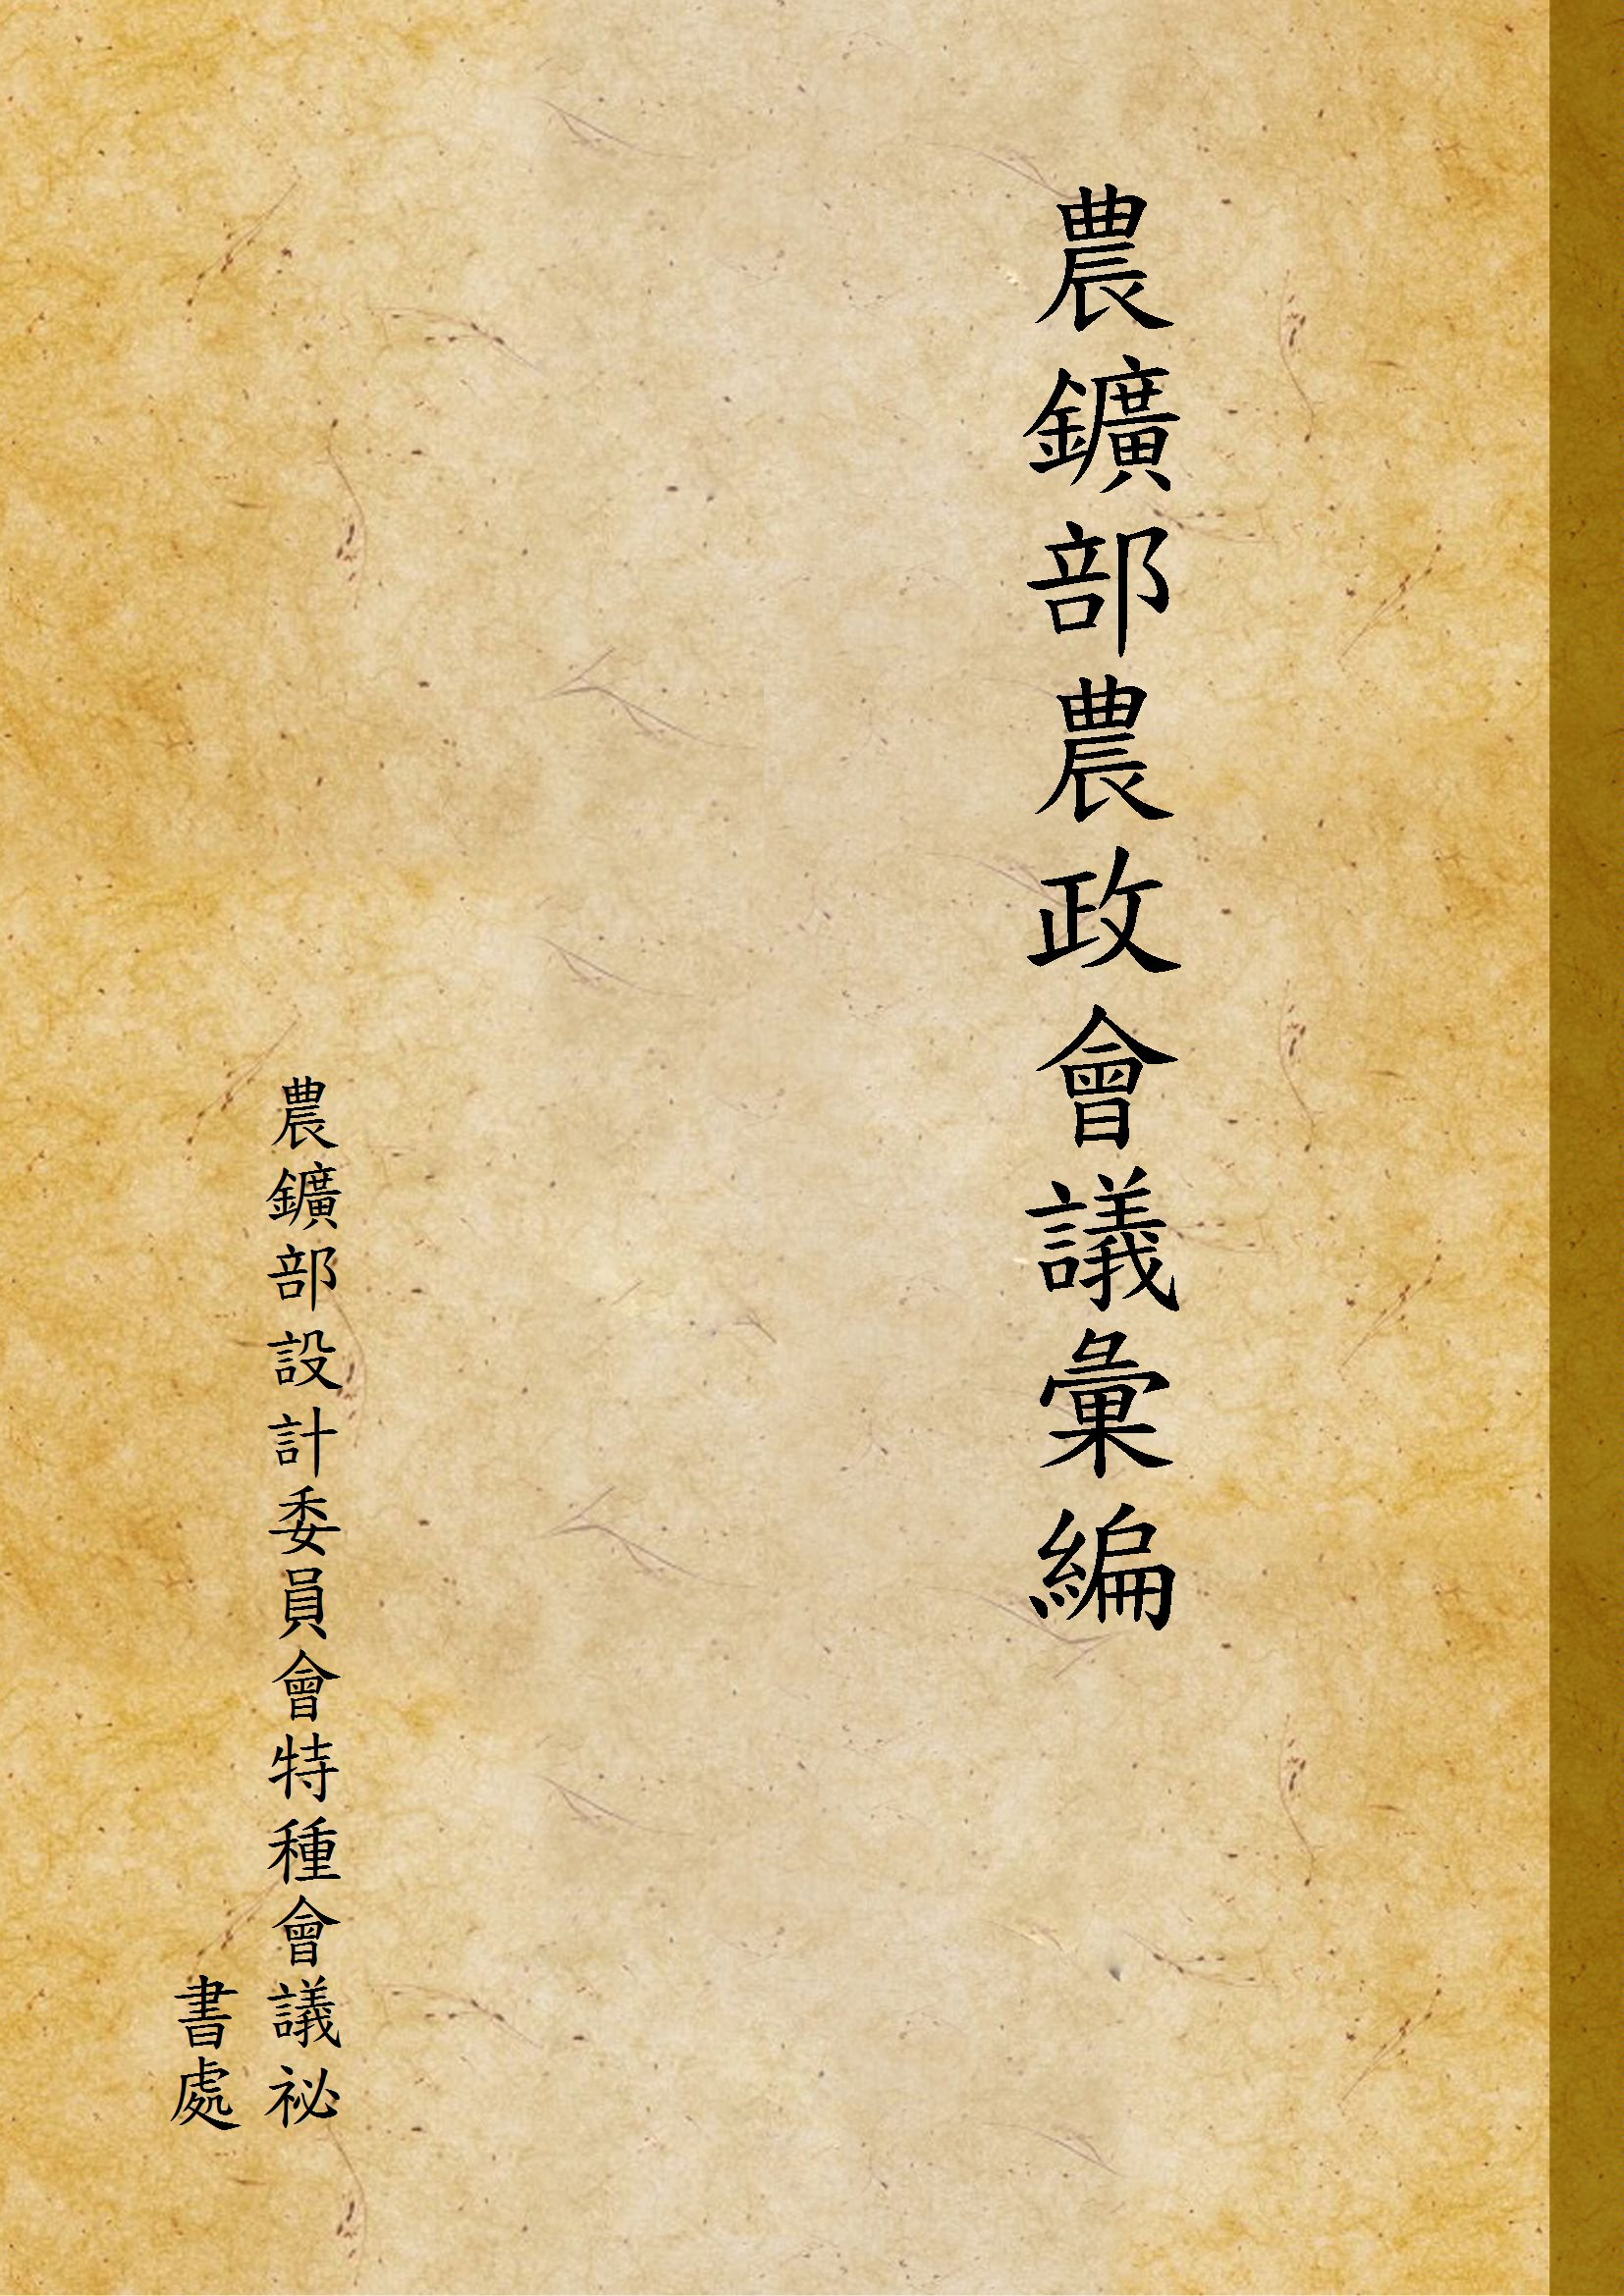 農鑛部農政會議彙編
農鑛部設計委員會特種會議祕
書處